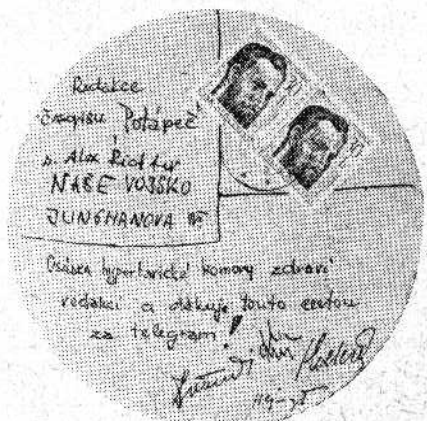 Redakce
časopisu "Potápěč"
s. Alex
NAŠE VOJSKO
JUNGMANOVA
Osádka hyperbarické komory zdraví
redakci a děkuje touto cestou
za telegram!
30
30